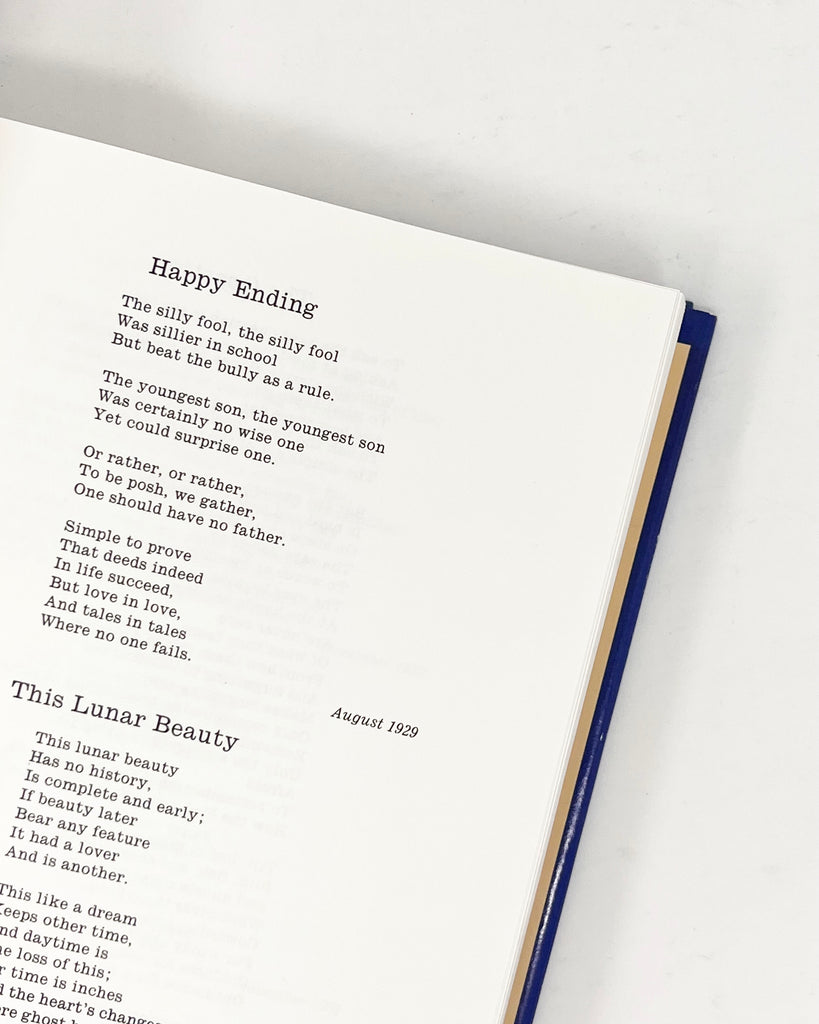 Happy Ending
The silly fool, the silly fool
Was sillier in school
But beat the bully as a rule.
The youngest son, the youngest son
Was certainly no wise one
Yet could surprise one.
Or rather, or rather,
To be posh, we gather,
One should have no father.
Simple to prove
That deeds indeed
In life succeed,
But love in love,
And tales in tales
Where no one fails.
August 1929
This Lunar Beauty
This lunar beauty
Has no history,
Is complete and early;
If beauty later
Bear any feature
It had a lover
And is another.
This like a dream
other time,
daytime is
loss of this;
time is inches
the heart's
ghost